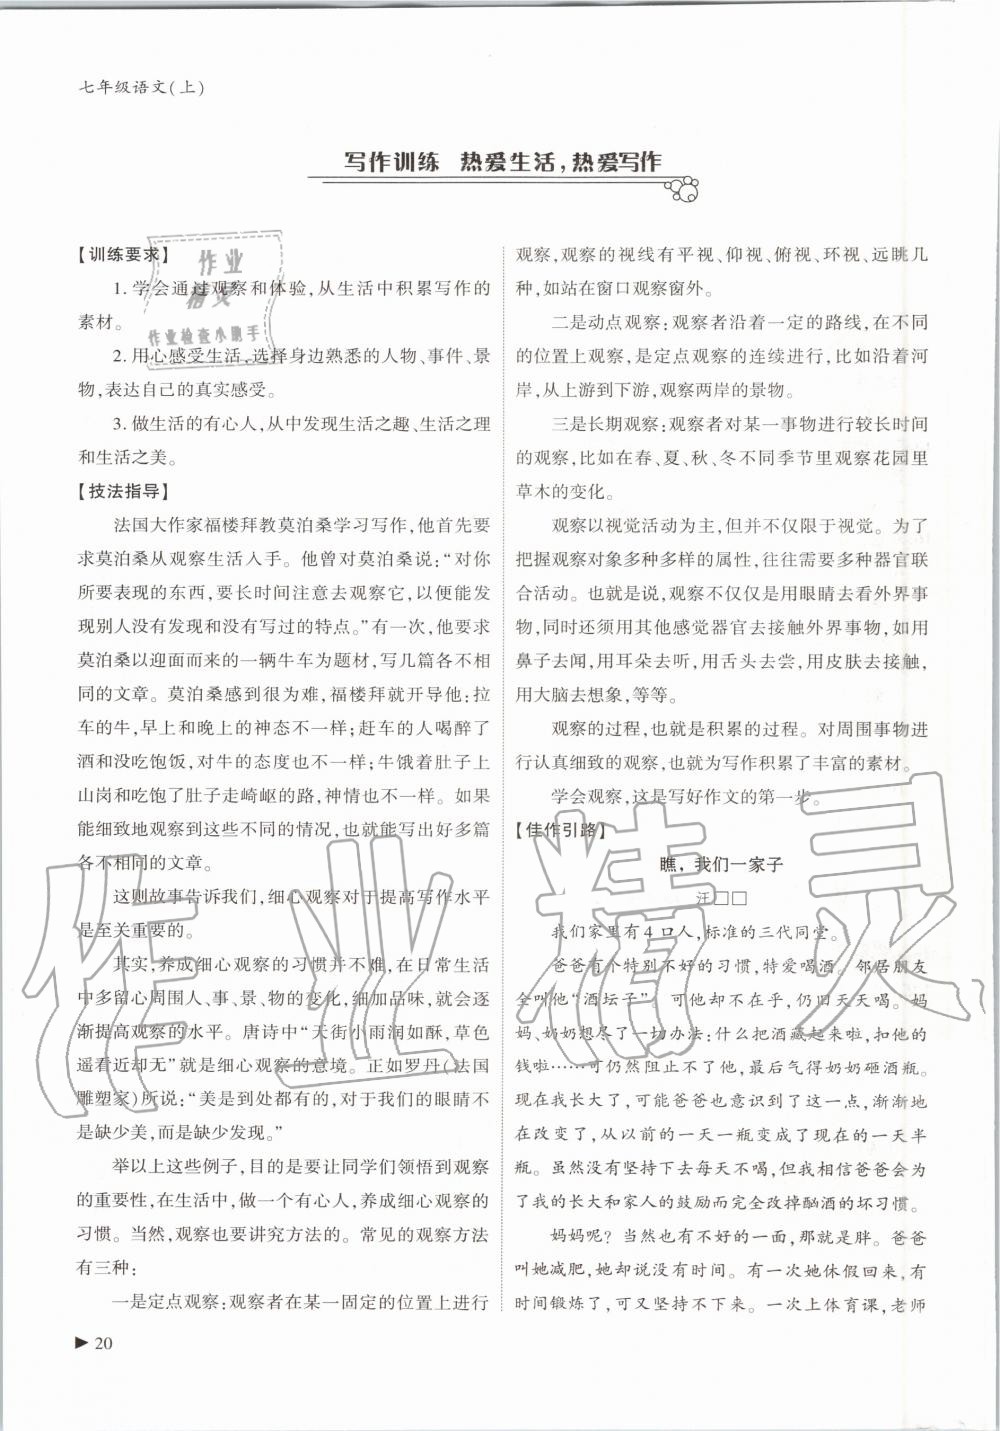 七年级语文(上)
写作训练 热爱生活,热爱写作
【训练要求】
1. 学会通过观察和体验,从生活中积累写作的
素材。
2. 用心感受生活,选择身边熟悉的人物、事件、景
物,表达自己的真实感受。
3. 做生活的有心人,从中发现生活之趣、生活之理
和生活之美。
【技法指导】
法国大作家福楼拜教莫泊桑学习写作,他首先要
求莫泊桑从观察生活入手。他曾对莫泊桑说:“对你
所要表现的东西,要长时间注意去观察它,以便能发
现别人没有发现和没有写过的特点。”有一次,他要求
莫泊桑以迎面而来的一辆牛车为题材,写几篇各不相
同的文章。莫泊桑感到很为难,福楼拜就开导他:拉
车的牛,早上和晚上的神态不一样;赶车的人喝醉了
酒和没吃饱饭,对牛的态度不一样;牛饿着肚子上
山岗和吃饱了肚子走崎岖的路,神情也不一样。如果
能细致地观察到这些不同的情况,也就能写出好多篇
各不相同的文章。
这则故事告诉我们,细心观察对于提高写作水平
是至关重要的。
其实,养成细心观察的习惯并不难,在日常生活
中多留心周围人、事、景、物的变化,细加品味,就会逐
渐提高观察的水平。唐诗中“天街小雨润如酥,草色
遥看近却无”就是细心观察的意境。正如罗丹(法国
雕塑家)所说:“美是到处都有的,对于我们的眼睛不
是缺少美,而是缺少发现。”
举以上这些例子,目的是要让同学们领悟到观察
的重要性,在生活中,做一个有心人,养成细心观察的
习惯。当然,观察也要讲究方法的。常见的观察方法
有三种:
一是定点观察:观察者在某一固定的位置上进行
观察,观察的视线有平视、仰视、俯视、环视、远眺几
种,如站在窗口观察窗外。
二是动点观察:观察者沿着一定的路线,在不同
的位置上观察,是定点观察的连续进行,比如沿着河
岸,从上游到下游,观察两岸的景物。
三是长期观察:观察者对某一事物进行较长时间
的观察,比如在春、夏、秋、冬不同季节里观察花园里
草木的变化。
观察以视觉活动为主,但并不仅限于视觉。为了
把握观察对象多种多样的属性,往往需要多种器官联
合活动。也就是说,观察不仅仅是用眼睛去看外界事
物,同时还须用其他感觉器官去接触外界事物,如用
鼻子去闻,用耳朵去听,用舌头去尝,用皮肤去接触,
用大脑去想象,等等。
观察的过程,也就是积累的过程。对周围事物进
行认真细致的观察,也就为写作积累了丰富的素材。
学会观察,这是写好作文的第一步。
【佳作引路】
瞧,我们一家子
汪□□
我们家里有4口人,标准的三代同堂。
爸爸有个特别不好的习惯,特爱喝酒。邻居朋友
全叫他“酒坛子”。可他却不在乎,仍旧天天喝。妈
妈、奶奶想尽了一切办法:什么把酒藏起来啦,扣他的
钱啦……可仍然阻止不了他,最后气得奶奶砸酒瓶。
现在我长大了,可能爸爸也意识到了这一点,渐渐地
在改变了,从以前的一天一瓶变成了现在的一天半
瓶。虽然没有坚持下去每天不喝,但我相信爸爸会为
了我的长大和家人的鼓励而完全改掉酗酒的坏习惯。
妈妈呢?当然也有不好的一面,那就是胖。爸爸
叫她减肥,她却说没有时间。有一次她休假回来,有
时间锻炼了,可又坚持不下来。一次上体育课,老师
▶ 20
作业
精灵
作业检查小助手
作业精灵